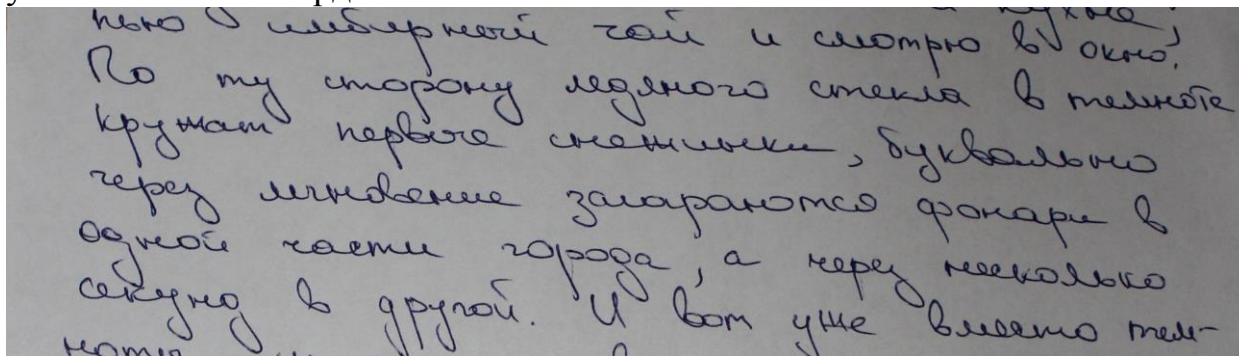 кухне,
пью имбирный чай и смотрю в окно.
По ту сторону ледяного стекла в темноте
кружат первые снежинки, буквально
через мгновение загораются фонари в
одной части города, а через несколько
секунд в другой. И вот уже вместо тем-
ноты